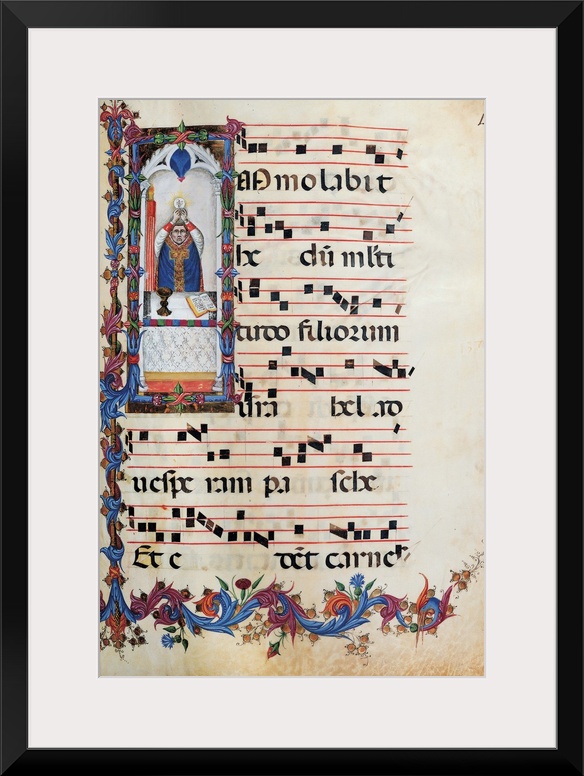 Immolabit
hę dum m̄lti
tudo filiorum
isra hel ad
uespe ram pa sche
Et e dēt carnes